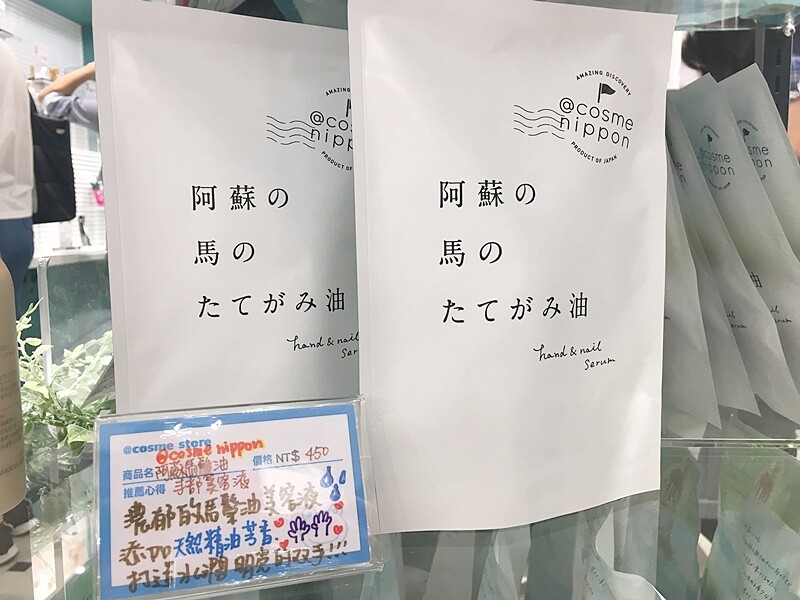 AMAZING DISCOVERY
@cosme
nippon
PRODUCT OF JAPAN
阿蘇の
馬の
たてがみ油
hand & nail
serum
AMAZING
@cos
nipp
PRODUCT OF
阿蘇の
馬の
たてがみ油
hand & nail
ser
@cosme
nippon
@cosme store
@cosme nippon
商品名 阿蘇馬鬃油 價格 NT$ 450
推薦心得 手部美容液
濃郁的馬鬃油美容液
添加天然精油芳香
打造水潤明亮的双手!!!